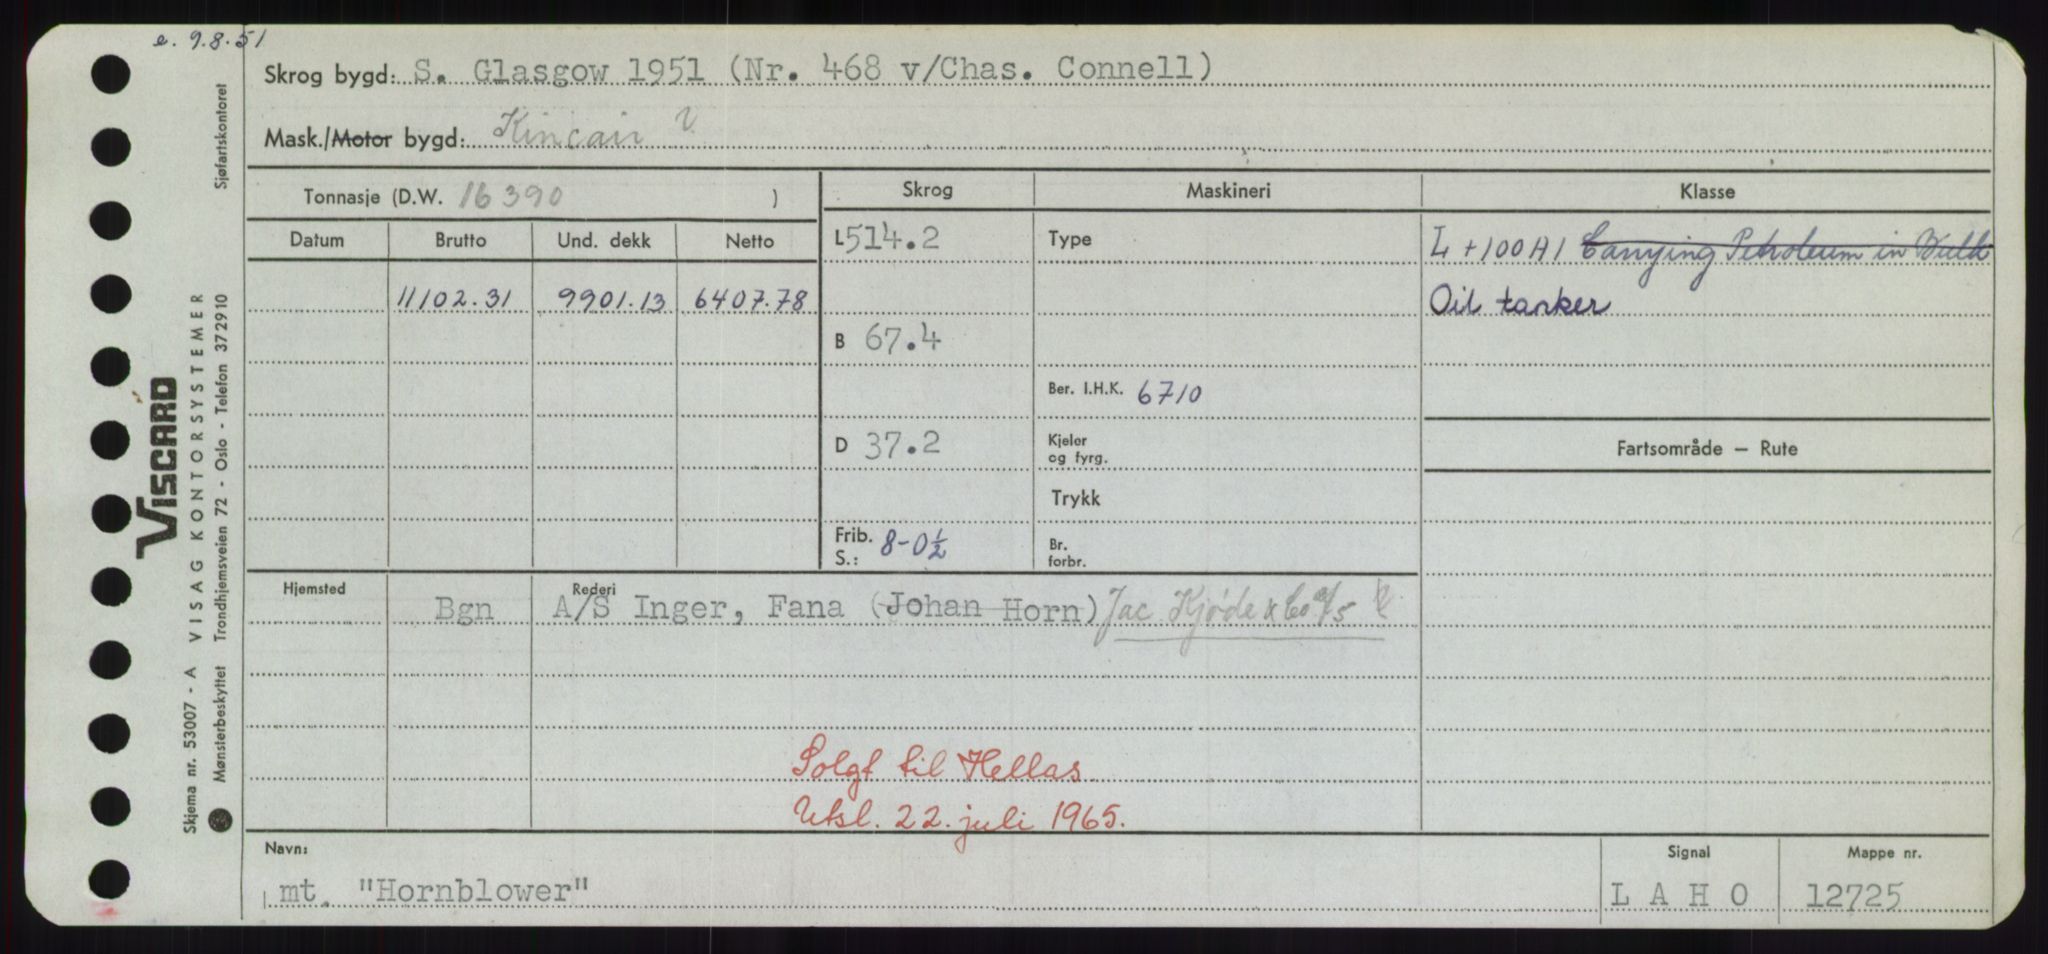 e. 9.8.51
Skrog bygd: S. Glasgow 1951 (Nr. 468 v/Chas. Connell)
Mask./Motor bygd: Kincair
Tonnasje (D.W. 16390 )
Skrog
Maskineri
Klasse
Datum
Brutto
Und. dekk
Netto
L 514.2
Type
L +100A1 Carrying Petroleum in Bulk
11102.31
9901.13
6407.78
Oil tanker
B 67.4
Ber. I.H.K. 6710
D 37.2
Kjeler
og fyrg.
Fartsområde — Rute
Trykk
Frib.
S.: 8-0½
Br.
forbr.
Hjemsted
Rederi
Bgn
A/S Inger, Fana (Johan Horn) Jac Kjøde & Co A/S
Solgt til Hellas
Utsl. 22. juli 1965.
Navn:
mt. "Hornblower"
Signal
L A H O
Mappe nr.
12725
Sjøfartskontoret
VISCARD
VISAG KONTORSYSTEMER
Trondhjemsveien 72 - Oslo - Telefon 372910
Skjema nr. 53007 - A
Mønsterbeskyttet